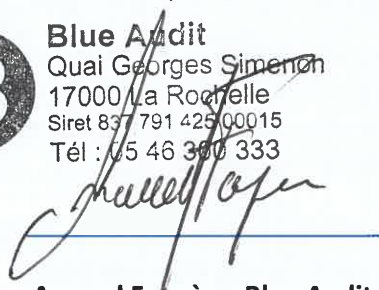 Blue Audit
Quai Georges Simenon
17000 La Rochelle
Siret 837 791 425 00015
Tél : 05 46 300 333
Blue Audit